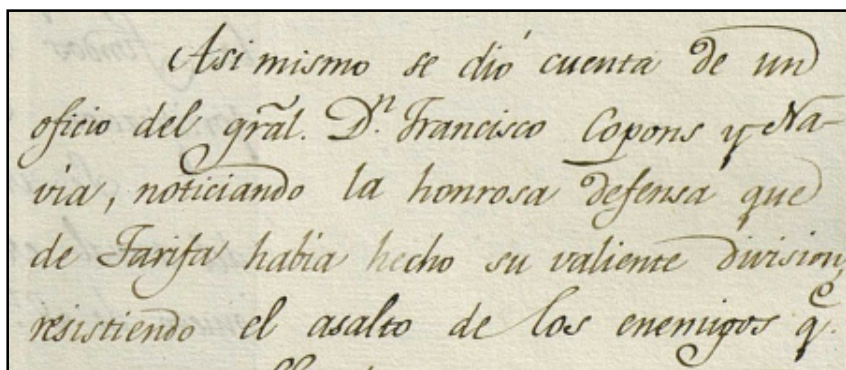 Asi mismo se dió cuenta de un
oficio del grãl. D.ⁿ Francisco Copons y Na-
via, noticiando la honrosa defensa que
de Tarifa habia hecho su valiente division,
resistiendo el asalto de los enemigos q.ᵉ